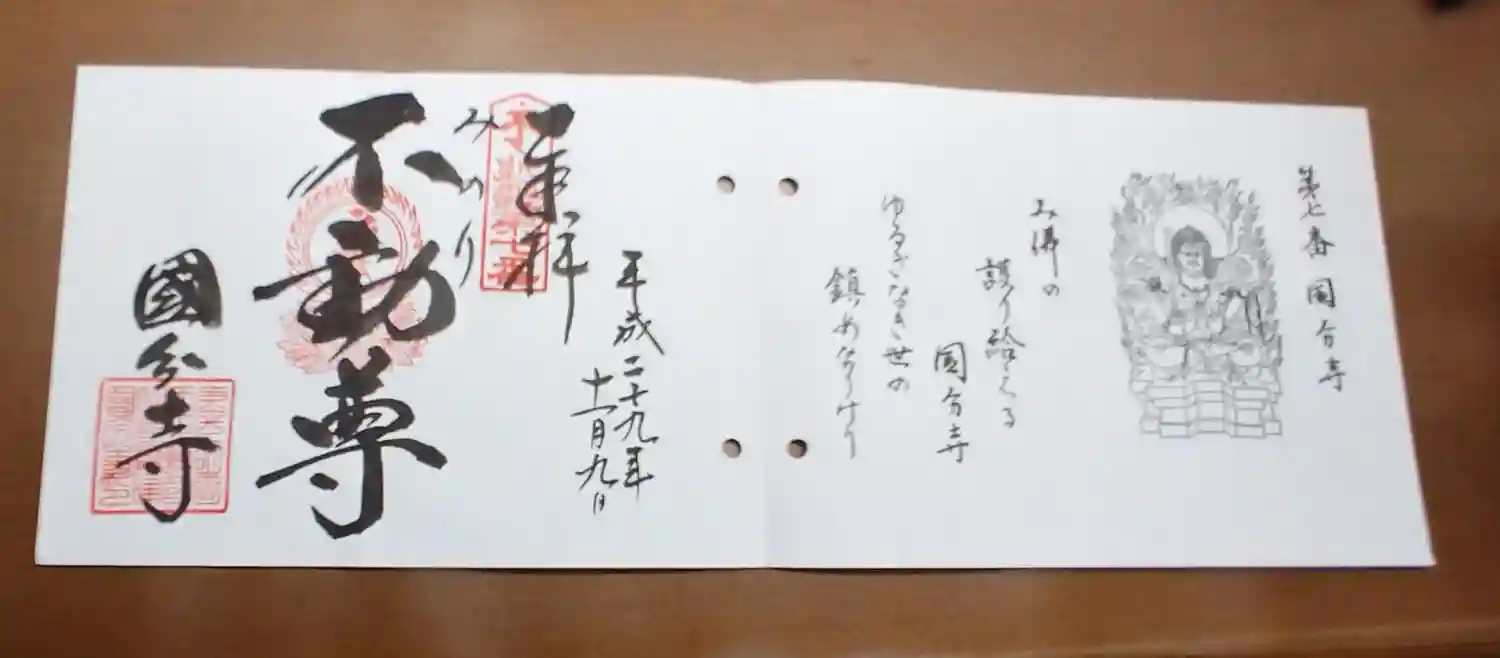 第七番 國分寺
み佛の
護り給える
國分寺
ゆるぎなき世の
鎮めなりけり
平成二十九年
十一月九日
奉拝
みのり
不動尊
國分寺